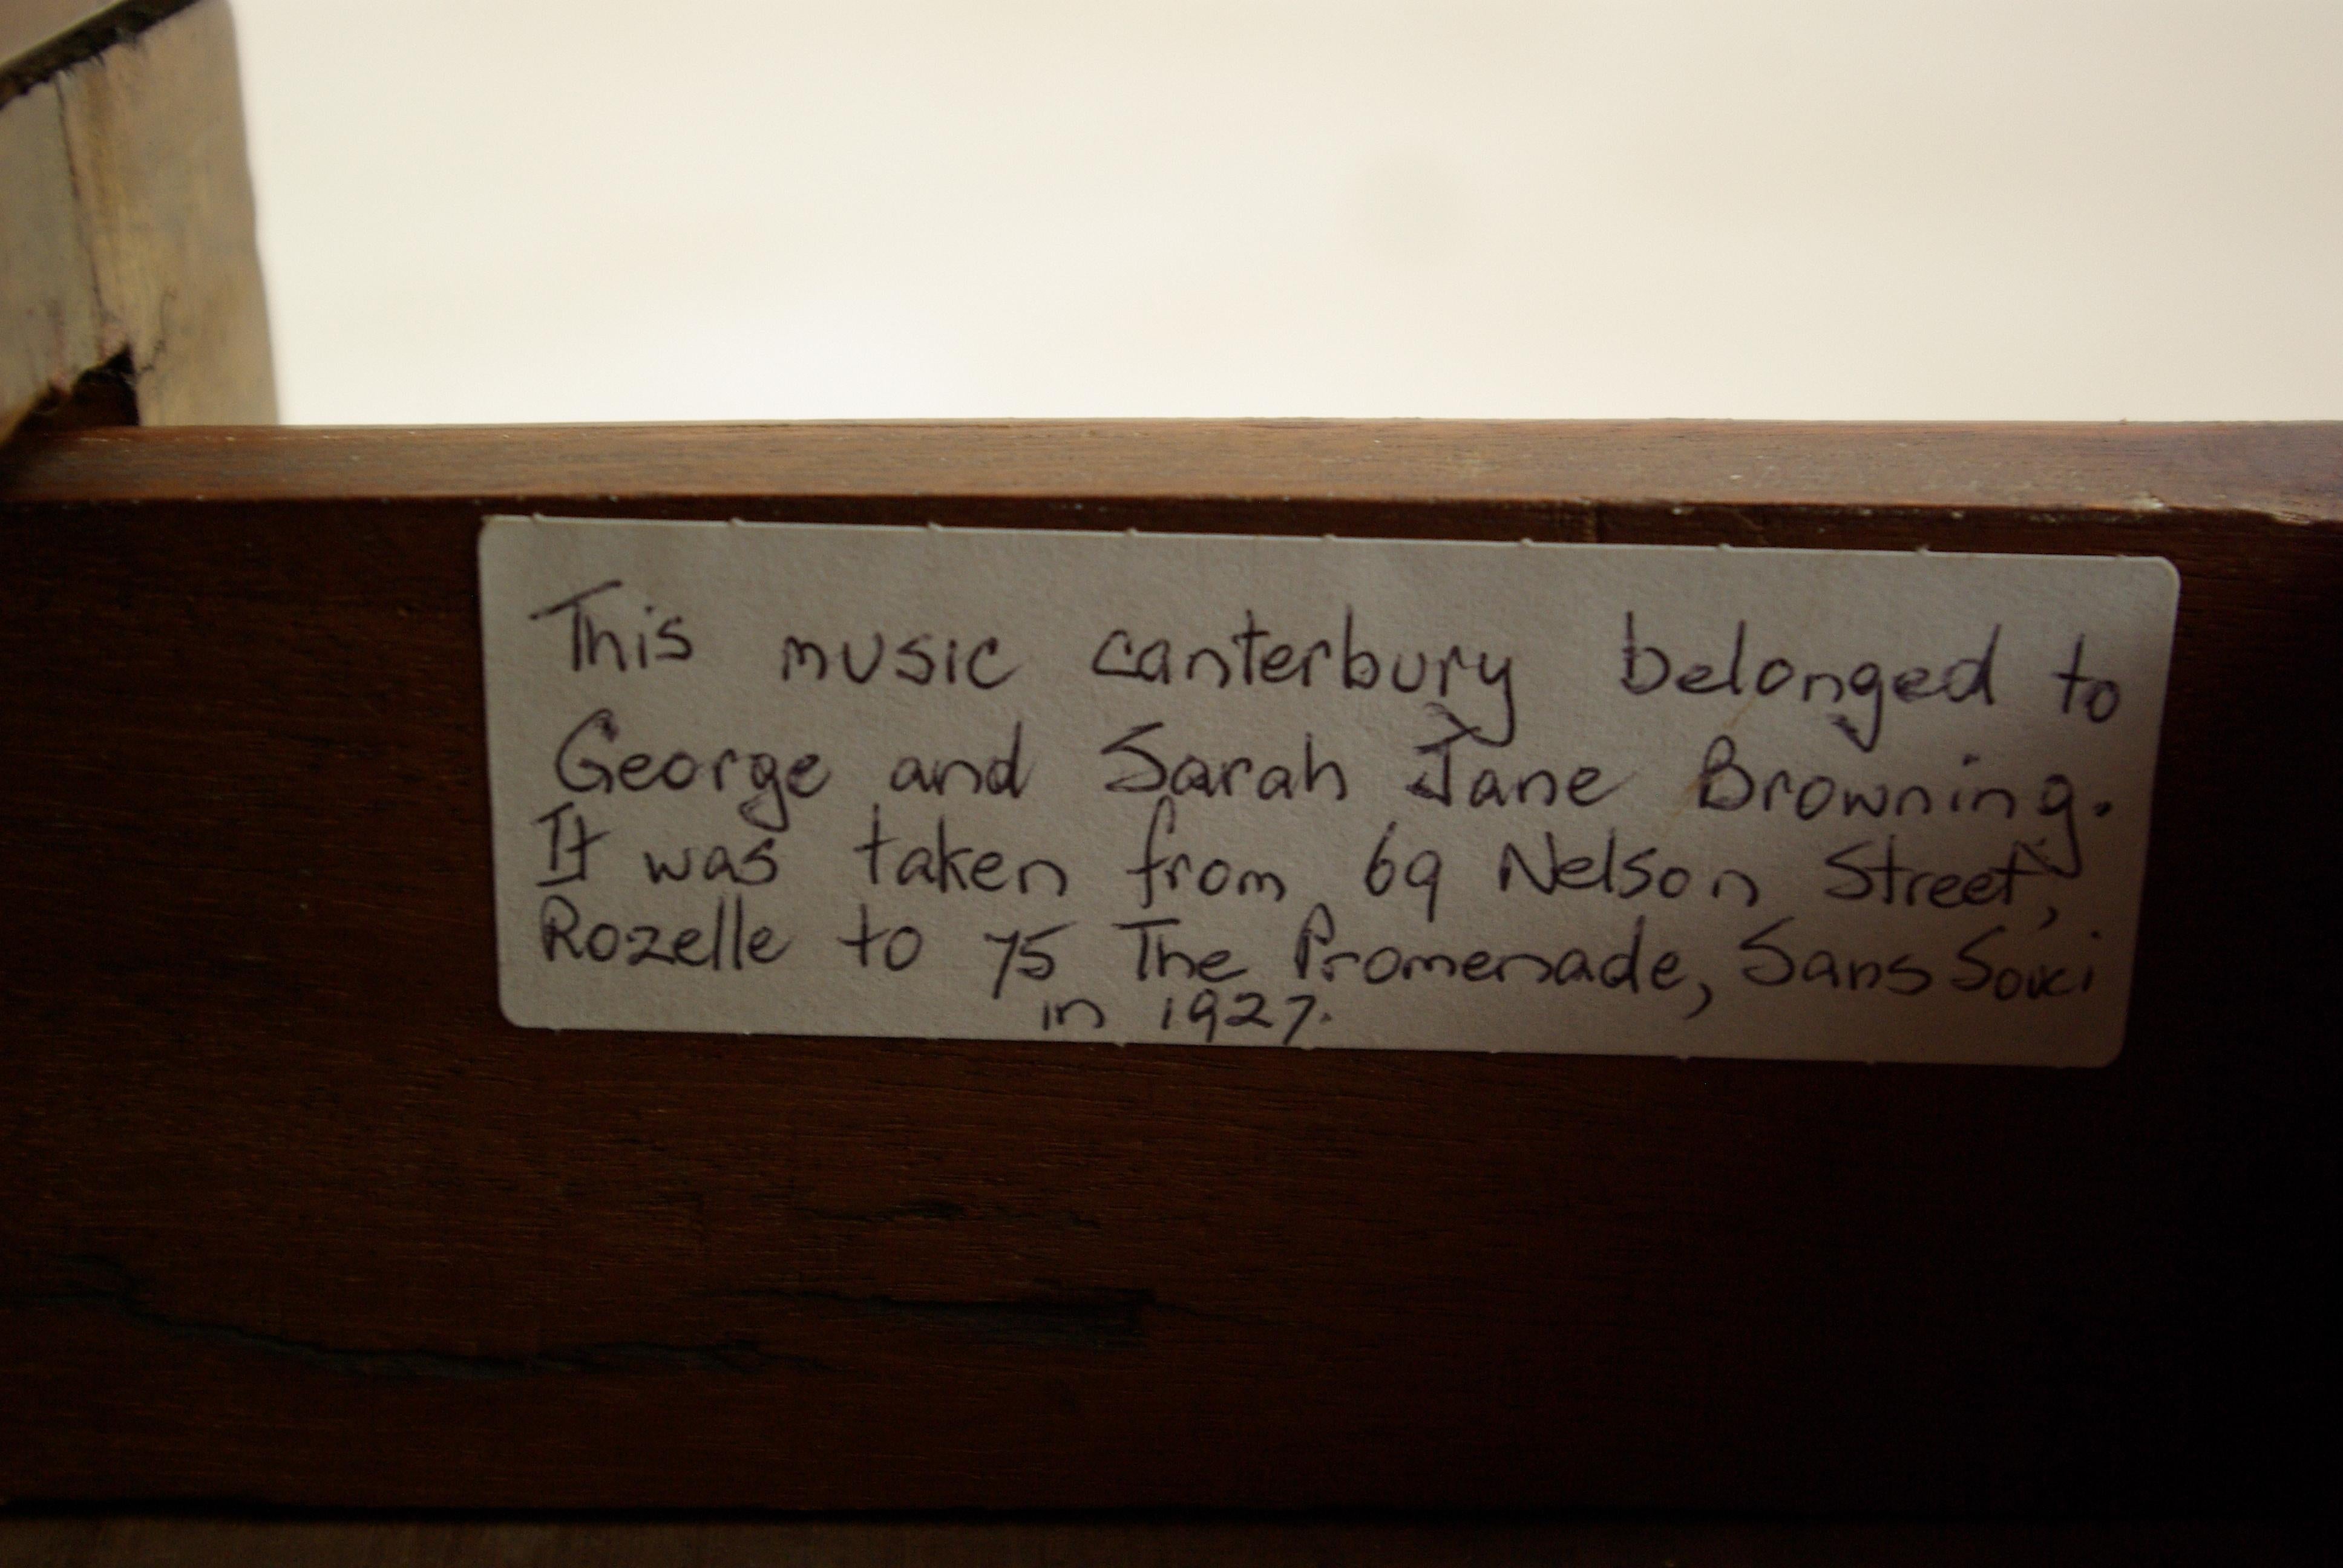 This music canterbury belonged to
George and Sarah Jane Browning.
It was taken from 69 Nelson Street,
Rozelle to 75 The Promenade, Sans Souci
in 1927.